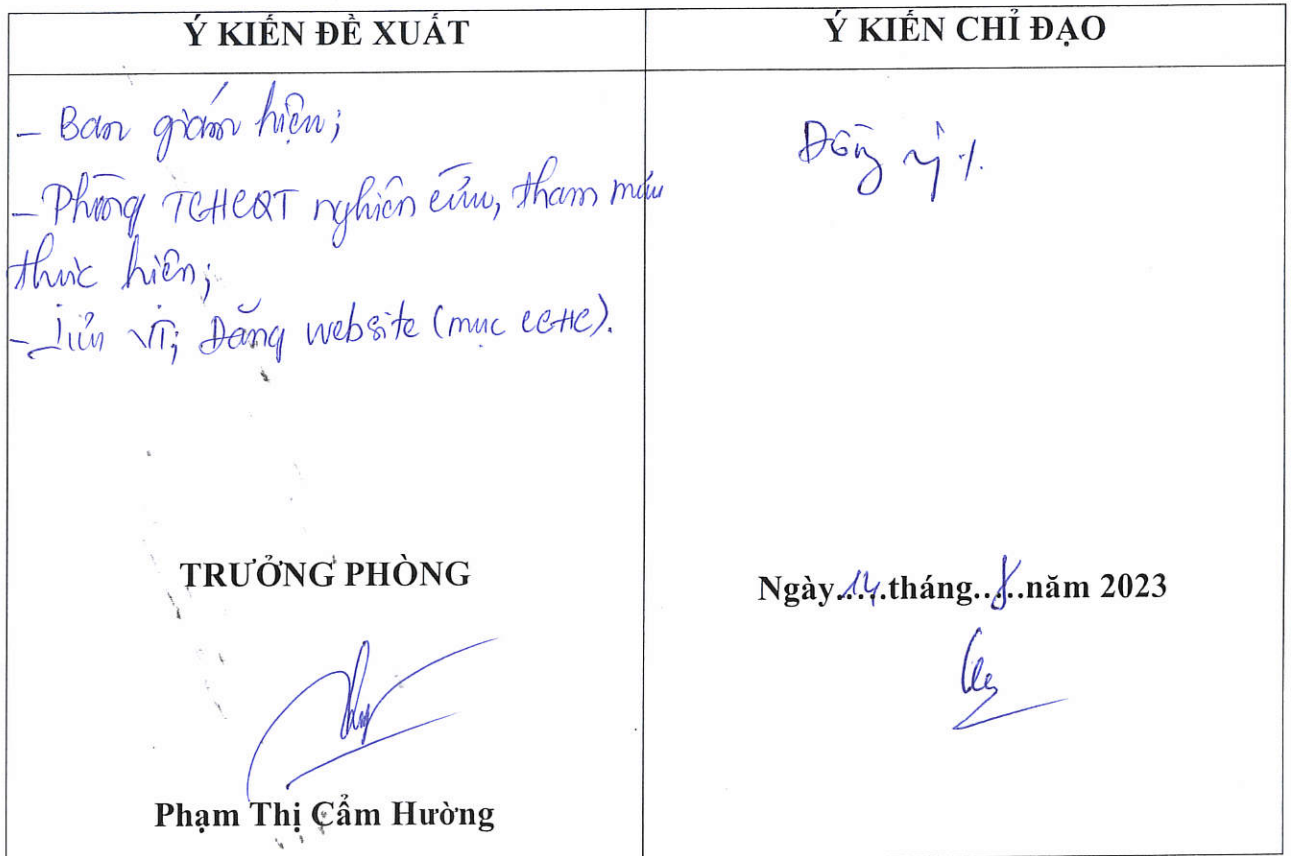 Ý KIẾN ĐỀ XUẤT
- Ban giám hiệu;
- Phòng TCHCQT nghiên cứu, tham mưu
thực hiện;
- Lưu VT; Đăng website (mục CCHC).
TRƯỞNG PHÒNG
Phạm Thị Cẩm Hường
Ý KIẾN CHỈ ĐẠO
Đồng ý ./.
Ngày 14 tháng 8 năm 2023